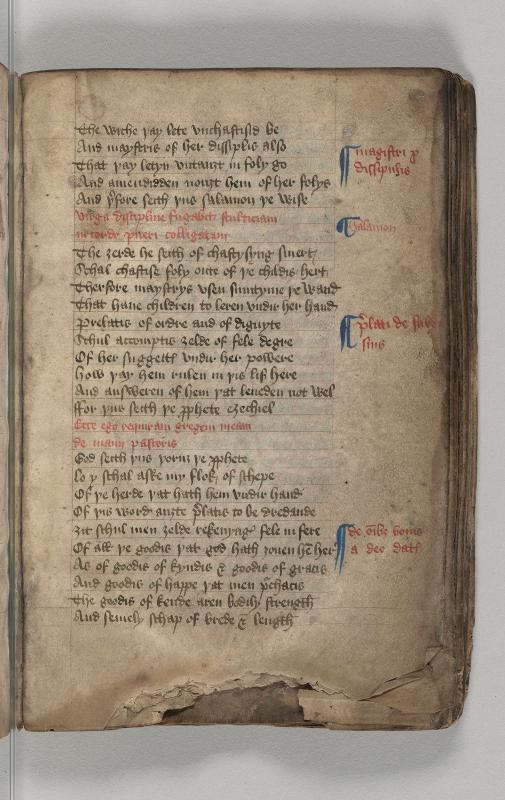 The wiche þay lete vnchastisid be
And maystris of her dissiplis also
That þay letyn vntauȝt in foly go
And amendidden nouȝt hem of her folys
And þfore seith þus salamon þe wise
virga discipline fugabit stulticiam
in corde pueri colligatam
The ȝerde he seith of chastysyng smert
Schal chastise foly oute of þe childis hert
Therfore maystrys vsen sumtyme þe wand
That haue children to leren vndir her hand
Prelatis of ordre and of dignyte
Schul accomptis ȝelde of fele degre
Of her suggettȝ vndir her powere
how þay hem rulen in þis lif here
And answeren of hem þat leueden not wel
ffor þus seith þe ꝓphete ezechiel
Ecce ego requiram gregem meam
de manu pastoris
God seith þus þoruȝ þe ꝓphete
lo y schal aske my flok of schepe
Of þe herde þat hath hem vndir hand
Of þis word auȝte p̄latis to be dredande
ȝit schul men ȝelde rekenyng fele in fere
Of all þe goodis þat god hath ȝouen hē her
As of goodis of kyndis & goodis of gracis
And goodis of happe þat men p̱chacis
The goodis of kende aren bodily strength
And semely schap of brede & length
magistri ꝓ
discipulis
Salamon
p̄lati de
de oībȝ bonis
a deo datis